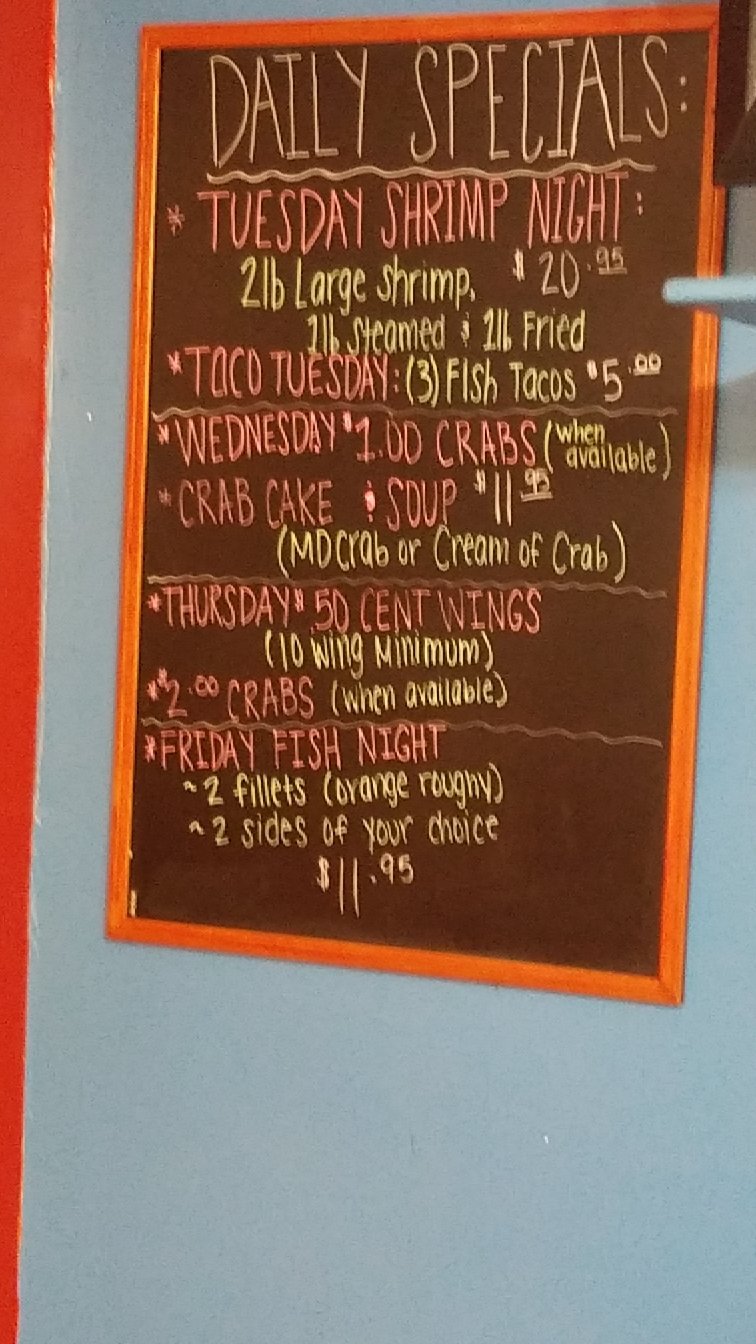 DAILY SPECIALS:
* TUESDAY SHRIMP NIGHT:
2lb Large Shrimp, $20.95
1lb Steamed & 1lb Fried
*TACO TUESDAY: (3) Fish Tacos $5.00
*WEDNESDAY $1.00 CRABS (when available)
*CRAB CAKE & SOUP $11.95
(MD Crab or Cream of Crab)
*THURSDAY $.50 CENT WINGS
(10 Wing Minimum)
*$2.00 CRABS (when available)
*FRIDAY FISH NIGHT
~2 fillets (orange roughy)
~2 sides of your choice
$11.95